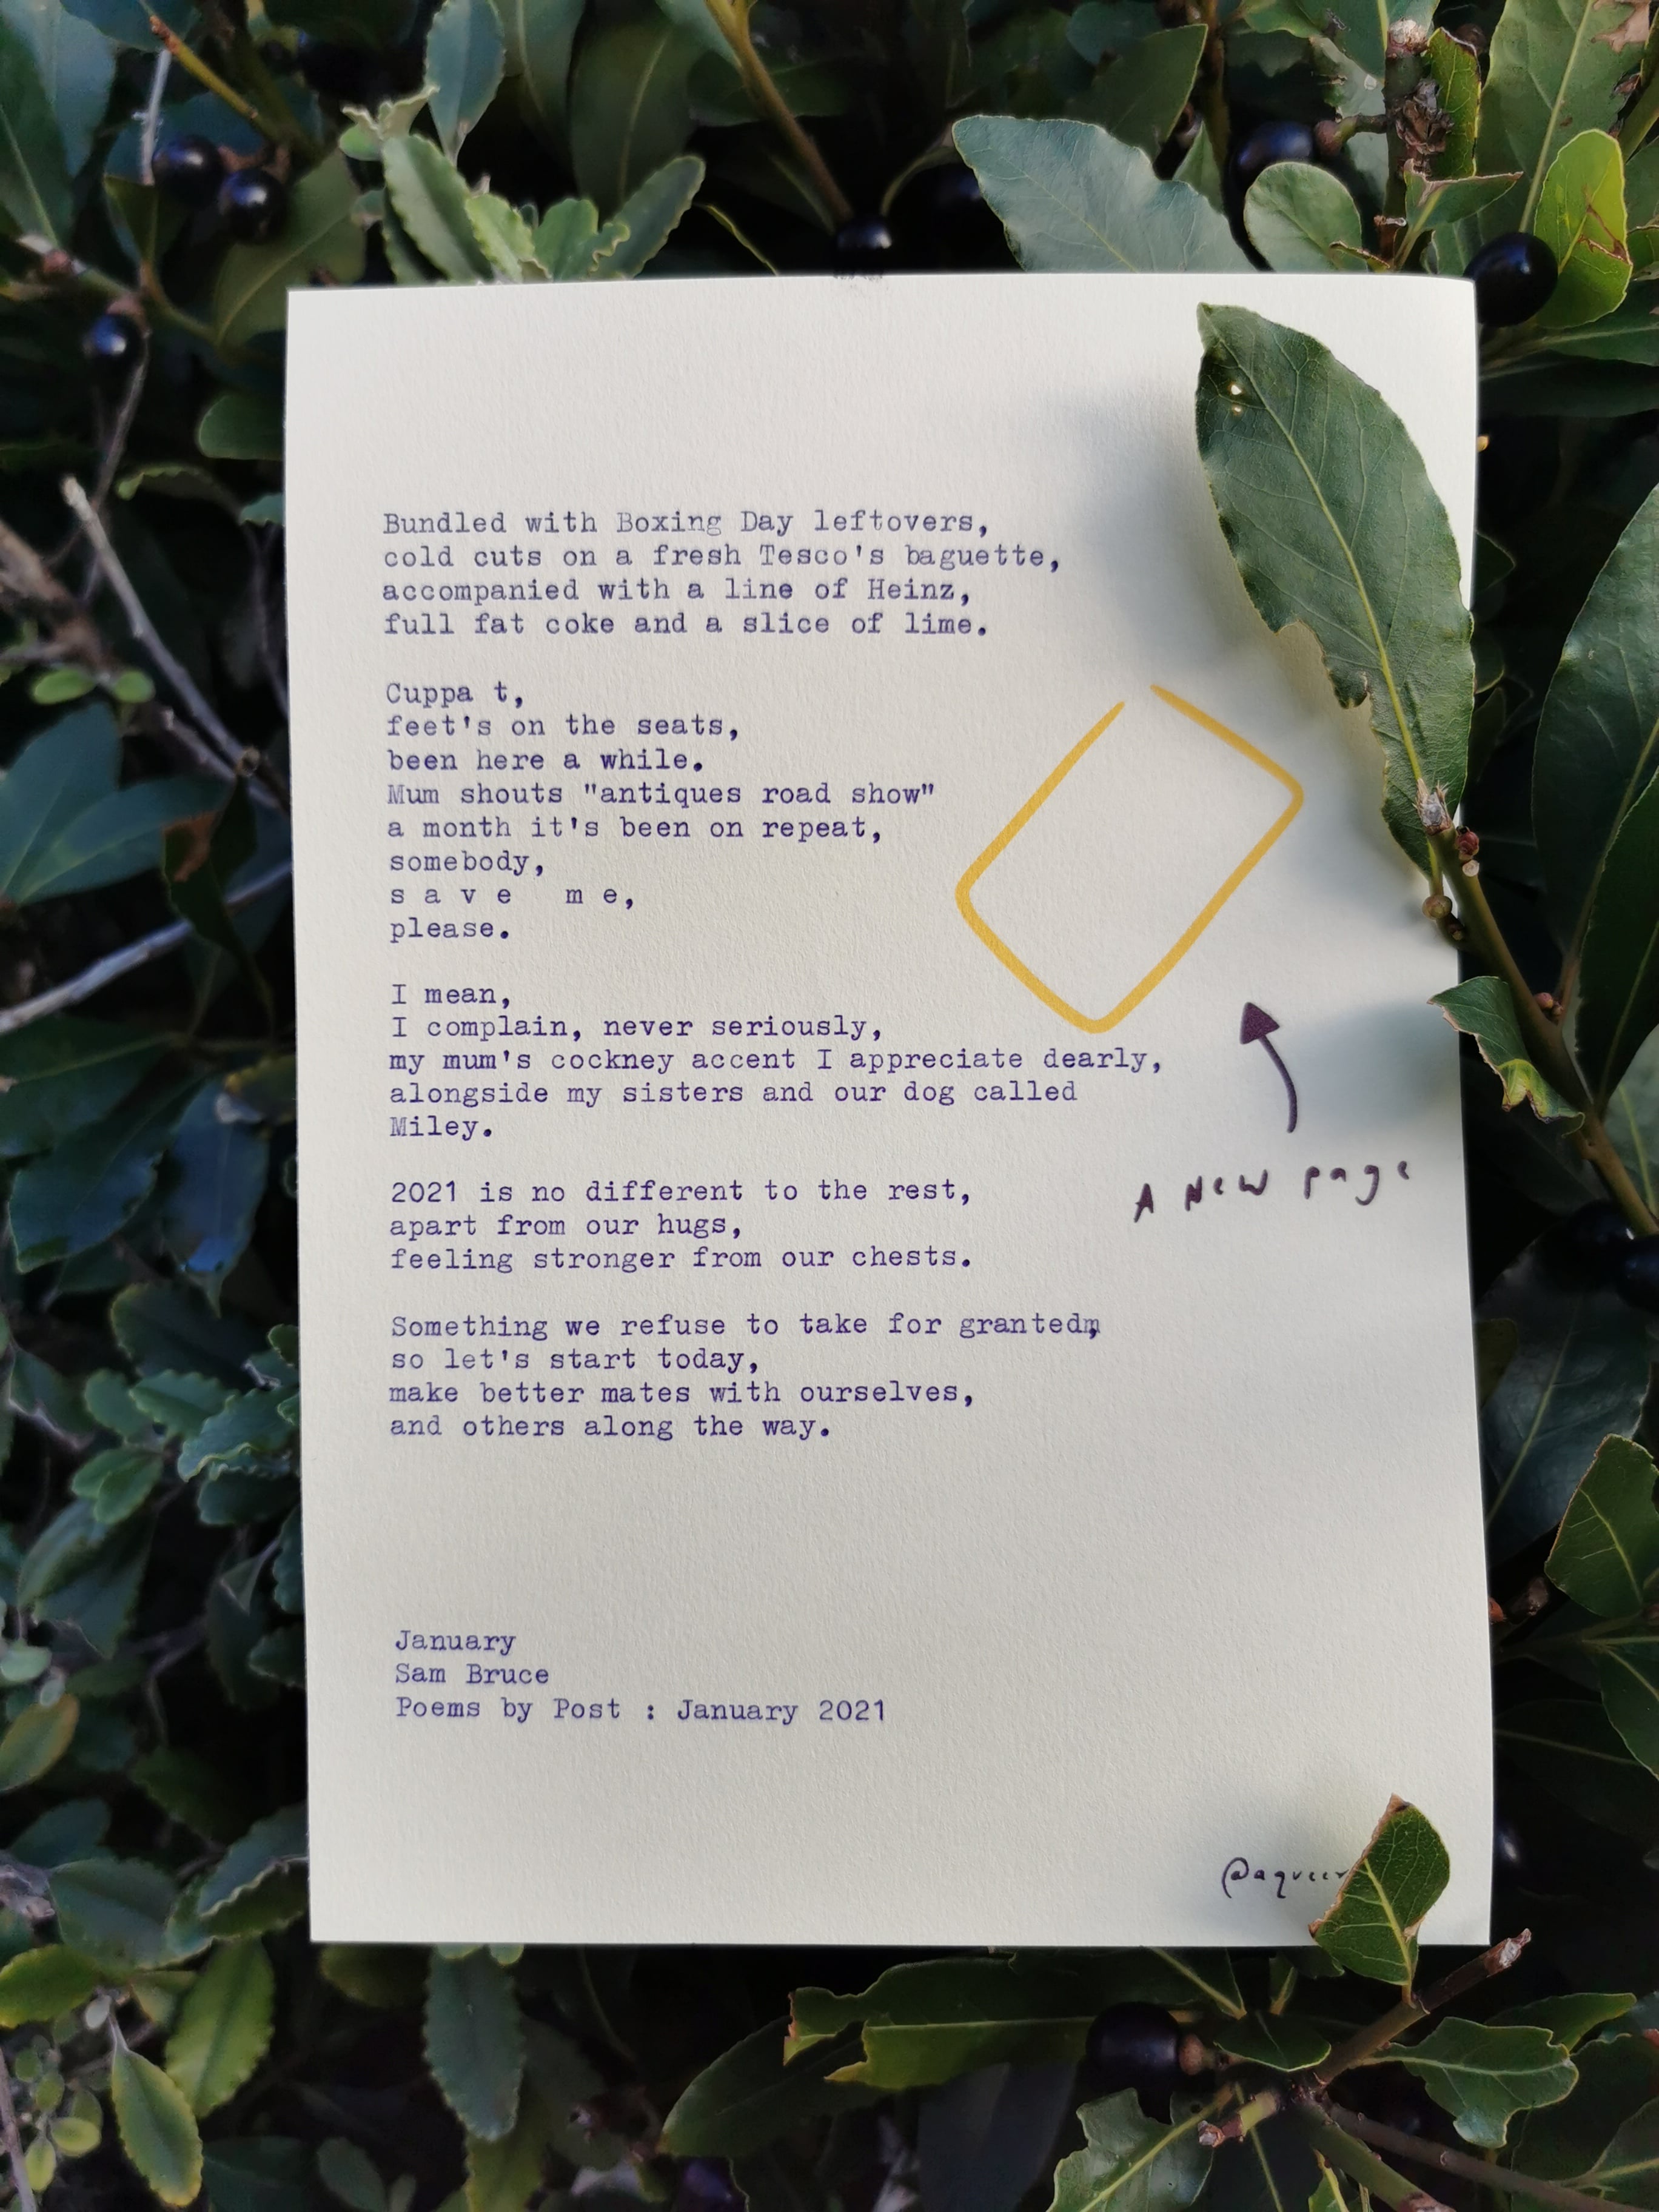 Bundled with Boxing Day leftovers,
cold cuts on a fresh Tesco's baguette,
accompanied with a line of Heinz,
full fat coke and a slice of lime.
Cuppa t,
feet's on the seats,
been here a while.
Mum shouts "antiques road show"
a month it's been on repeat,
somebody,
s a v e   m e,
please.
I mean,
I complain, never seriously,
my mum's cockney accent I appreciate dearly,
alongside my sisters and our dog called
Miley.
A New page
2021 is no different to the rest,
apart from our hugs,
feeling stronger from our chests.
Something we refuse to take for granted,
so let's start today,
make better mates with ourselves,
and others along the way.
January
Sam Bruce
Poems by Post : January 2021